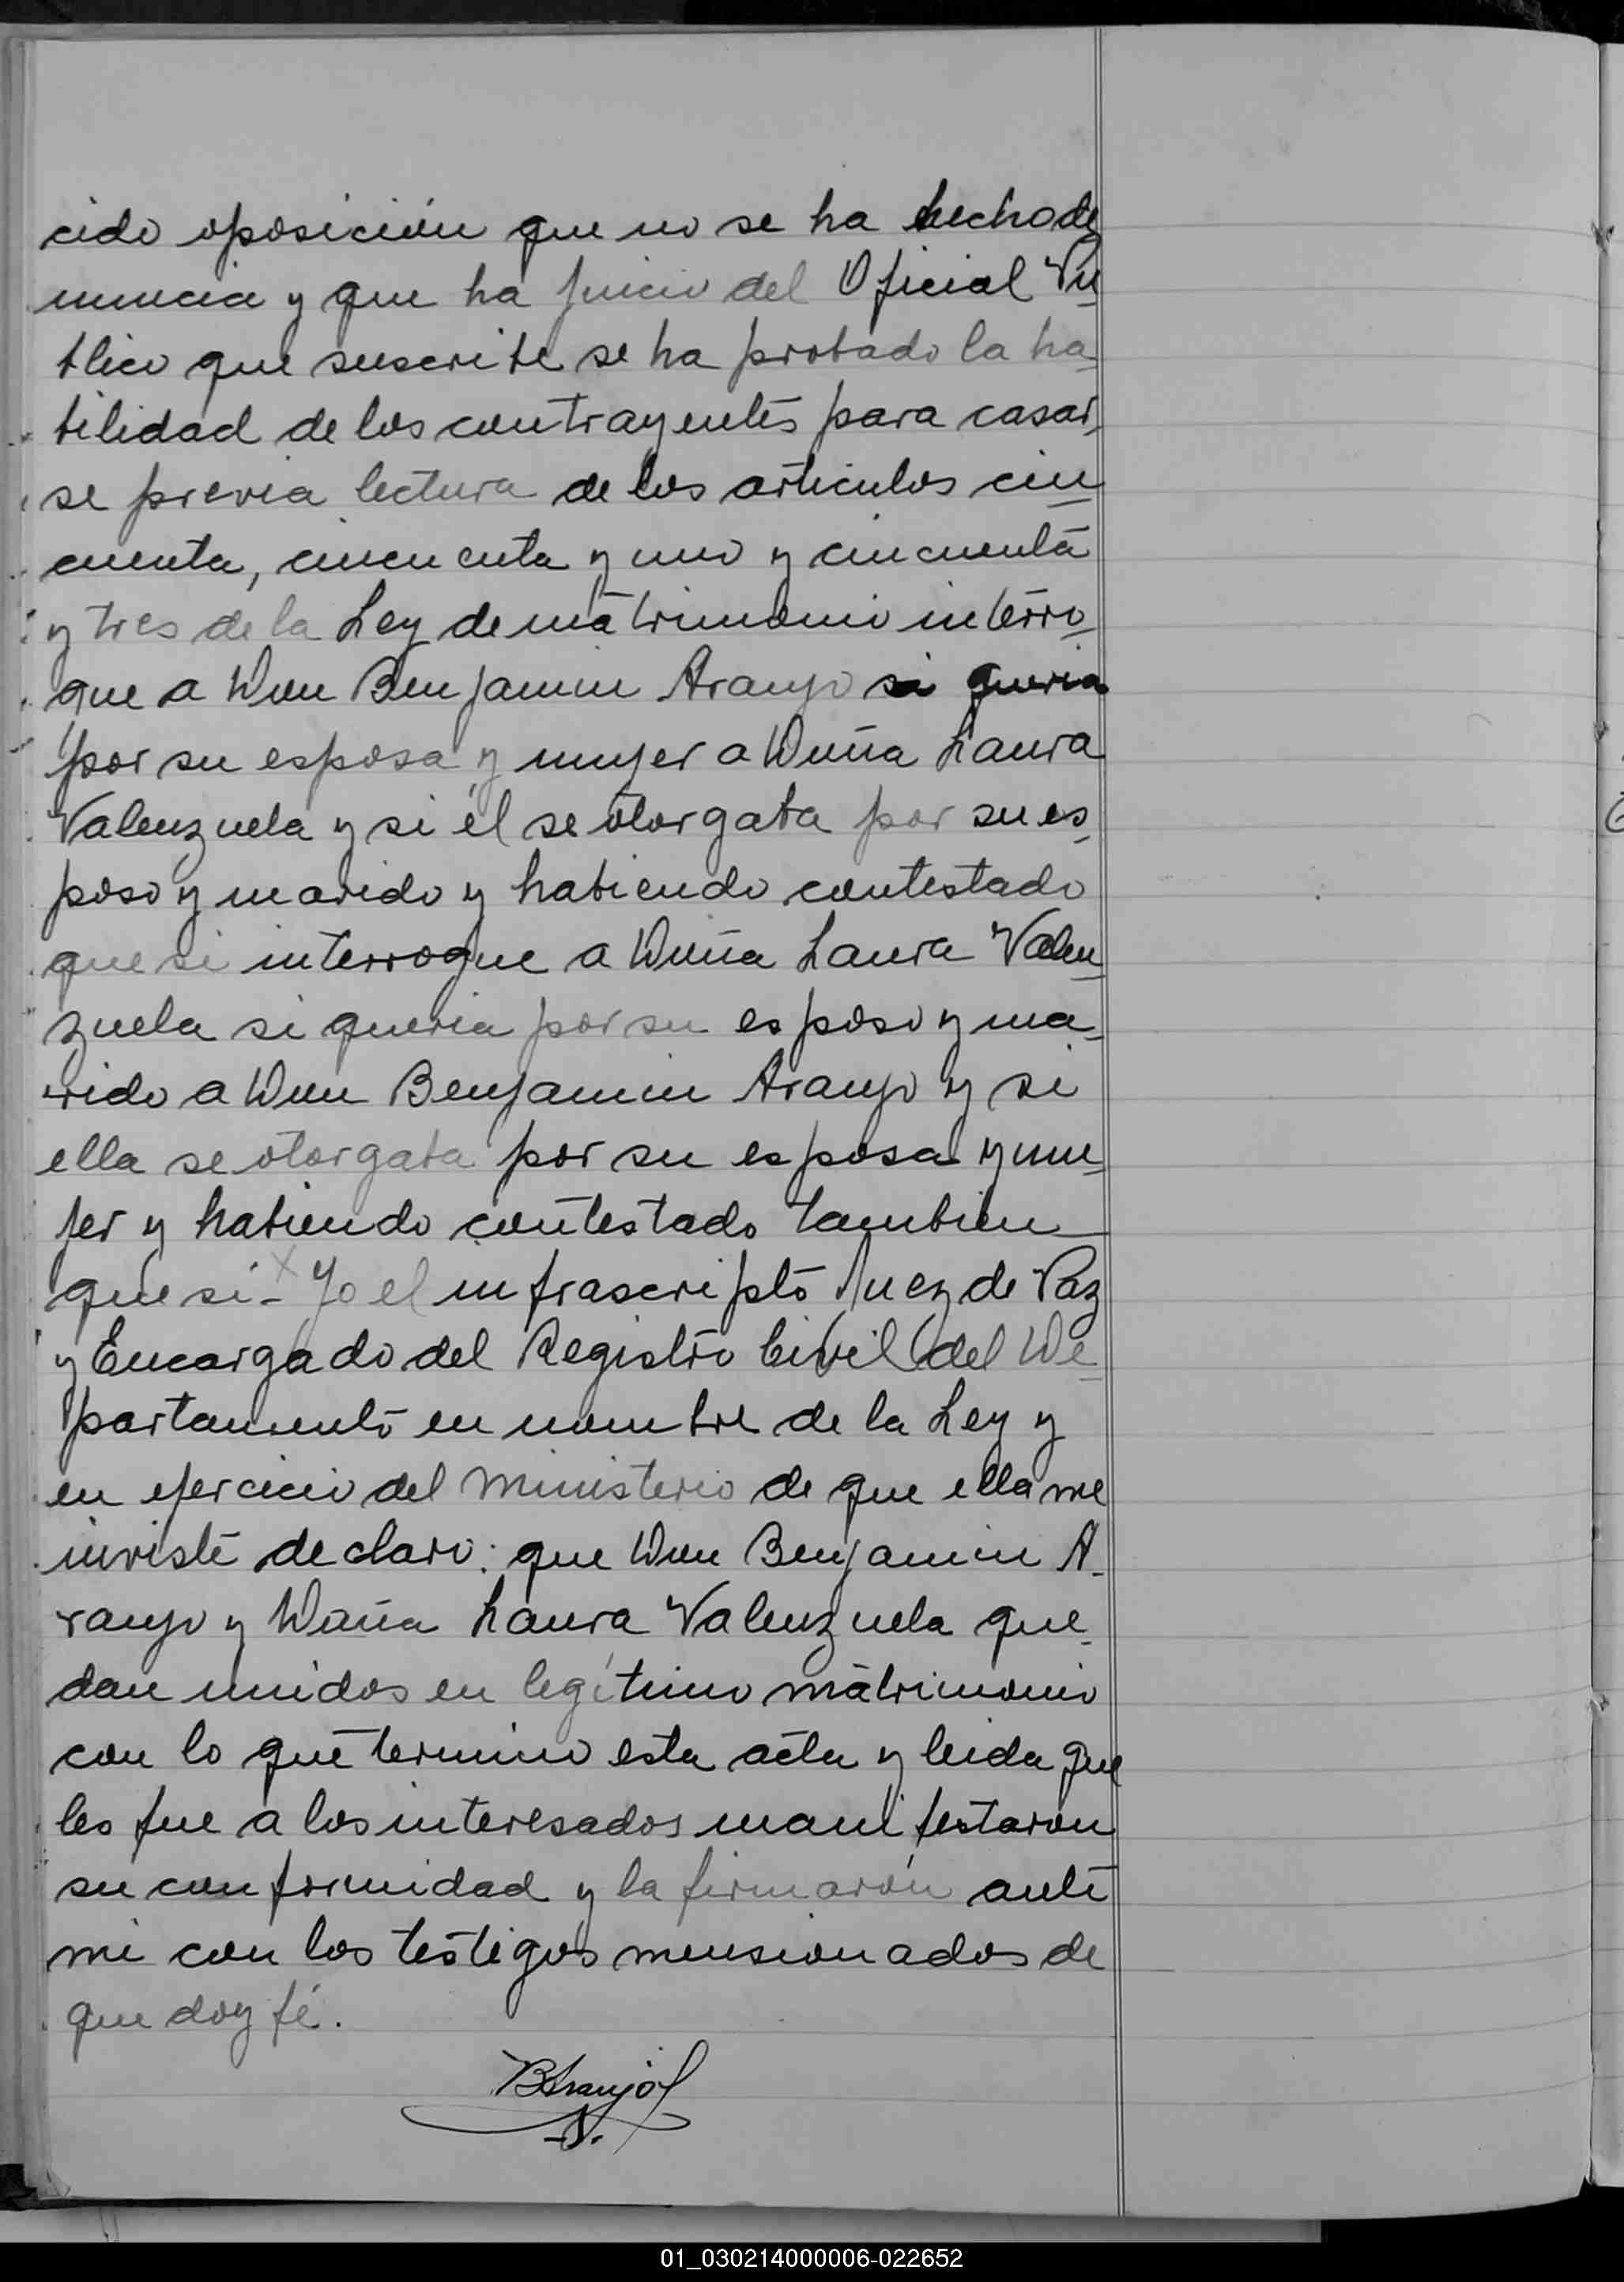 cido oposición que no se ha hecho de
nuncia y que ha juicio del Oficial Pú
blico que suscribe se ha probado la ha
bilidad de los contrayentes para casar
se previa lectura de los articulos cin
cuenta, cincuenta y uno y cincuenta
y tres de la Ley de matrimonio interro
que a Don Benjamin Araujo si queria
por su esposa y mujer a Doña Laura
Valenzuela y si él se otorgaba por su es
poso y marido y habiendo contestado
que si interrogue a Doña Laura Valen
zuela si queria por su esposo y ma
rido a Don Benjamin Araujo y si
ella se otorgaba por su esposa y mu
jer y habiendo contestado tambien
que si - Yo el infrascripto Juez de Paz
y Encargado del Registro Civil del De
partamento en nombre de la Ley y
en ejercicio del ministerio de que ella me
inviste declaro: que Don Benjamin A-
raujo y Doña Laura Valenzuela que
dan unidos en legítimo matrimonio
con lo que termino esta acta y leida que
les fue a los interesados manifestaron
su conformidad y la firmarón ante
mi con los testigos mensionados de
que doy fé.
BAraujo
01_030214000006-022652